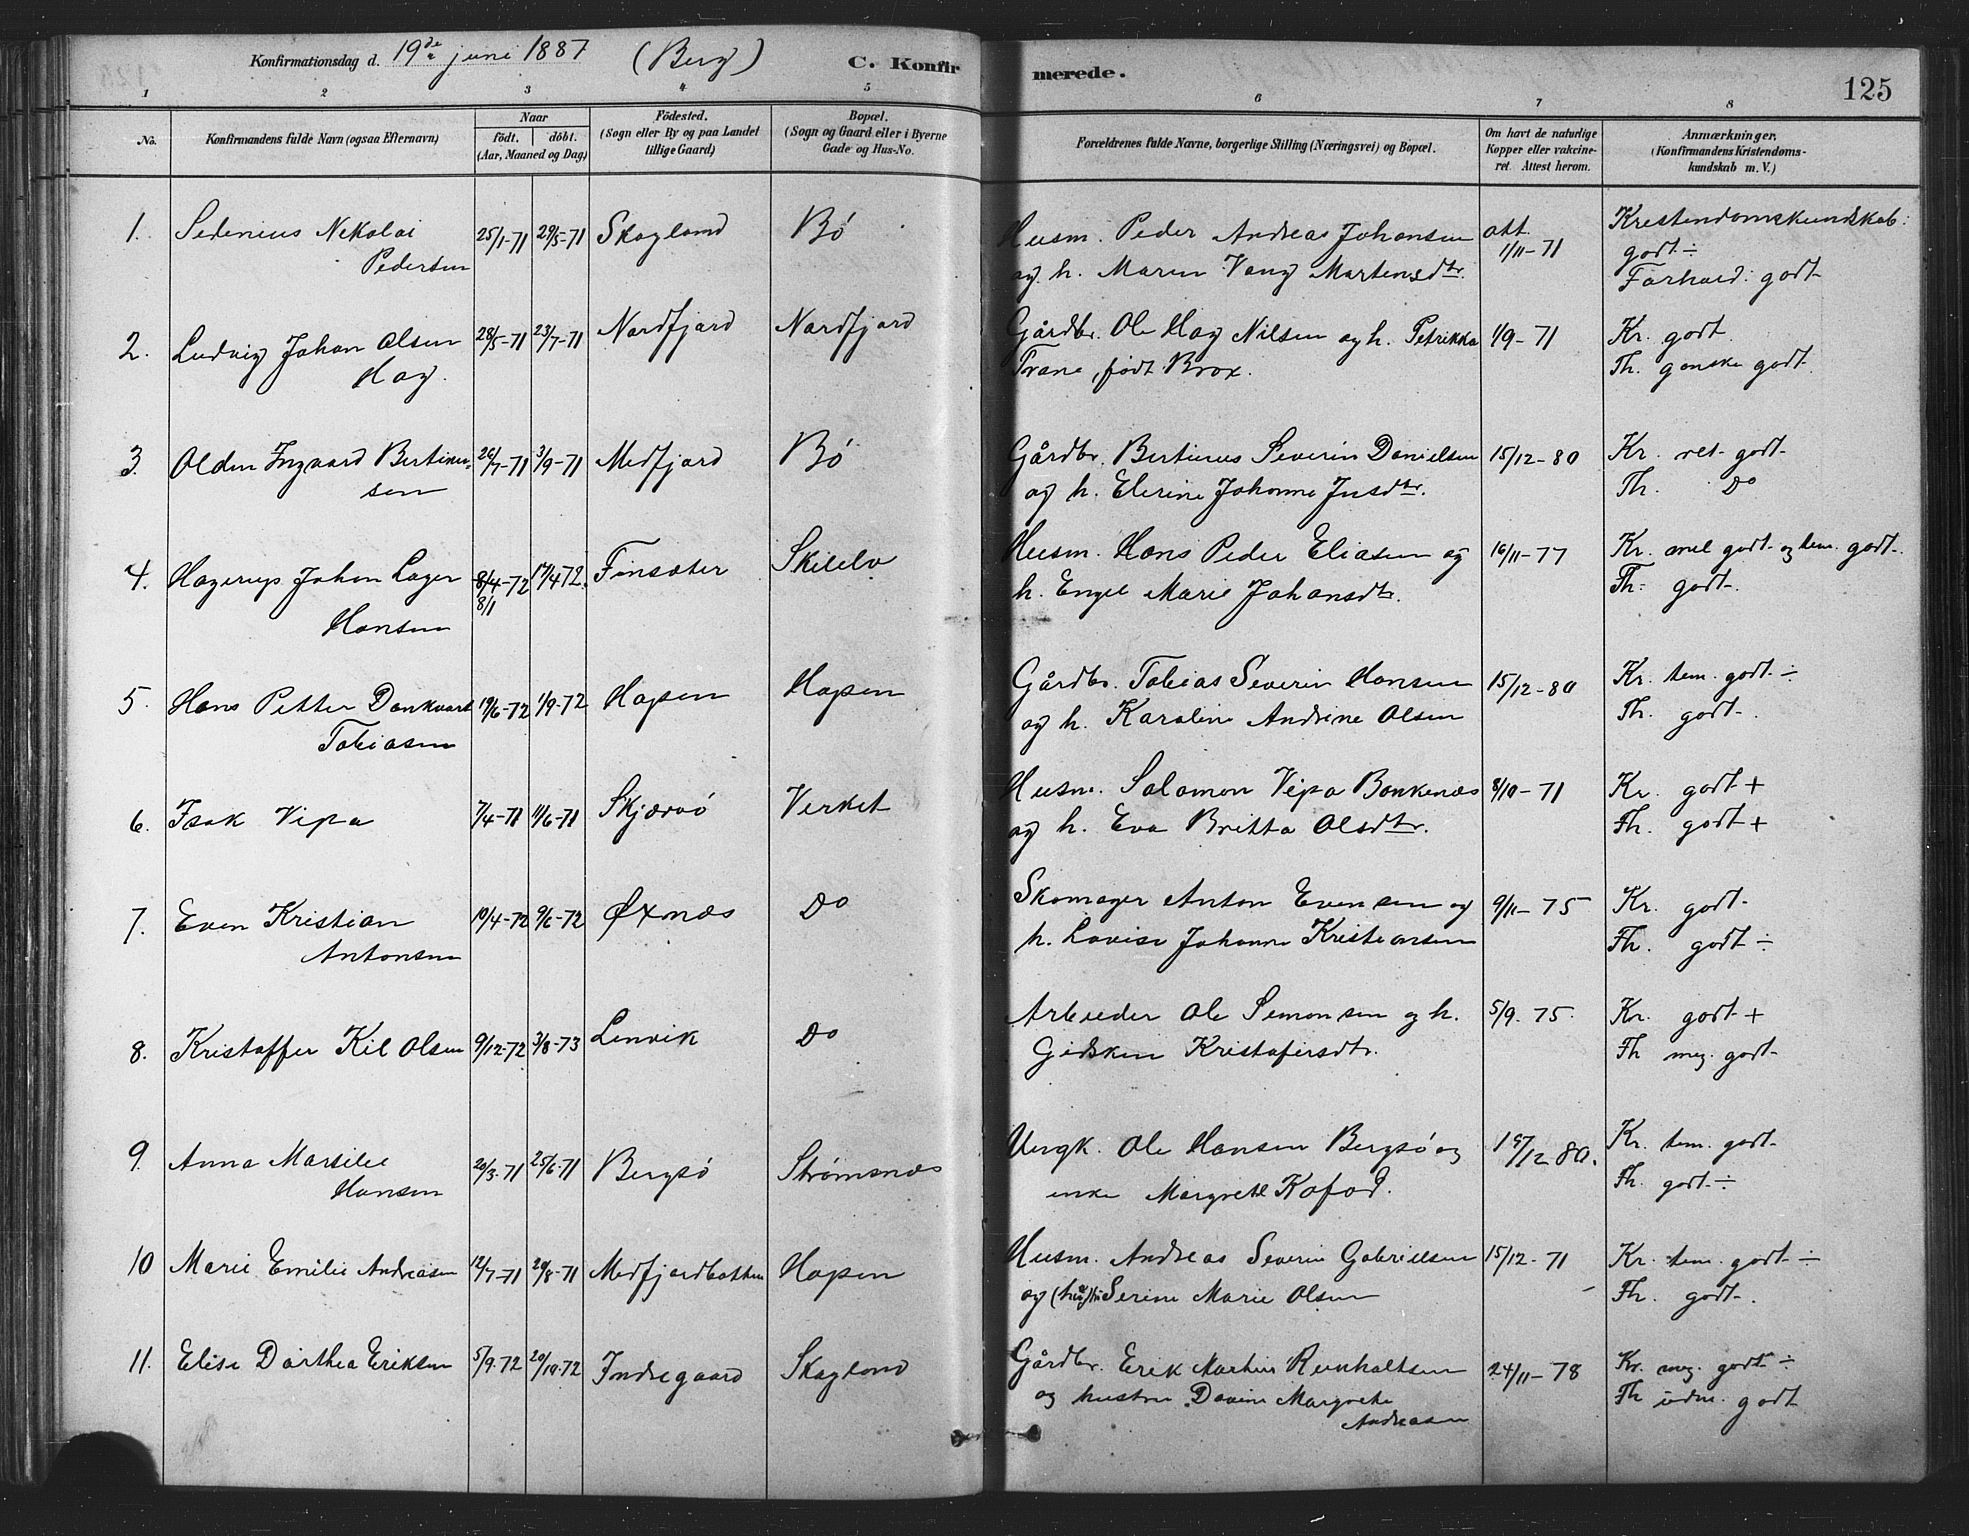 Konfirmationsdag d. 19de juni 1887 (Berg) C. Konfirmerede. 125
1 2 3 4 5 6 7 8
No. Konfirmandens fulde Navn (ogsaa Efternavn) Naar födt. döbt. (Aar, Maaned og Dag) Födested. (Sogn eller By og paa Landet tillige Gaard) Bopæl. (Sogn og Gaard eller i Byerne Gade og Hus-No. Forældrenes fulde Navne, borgerlige Stilling (Næringsvei) og Bopæl. Om havt de naturlige Kopper eller vakcineret. Attest herom. Anmærkninger. (Konfirmandens Kristendomskundskab m. V.)
1. Sedenius Nekolai 25/1-71 29/5-71 Skogland Bö Husm. Peder Andreas Johansen att. 1/11-71 Kristendomskundskab:
Pedersen og h. Maren Vang Martensdtr. godt ÷
Forhold: godt
2. Ludvig Johan Olsen 28/5-71 23/7-71 Nordfjord Nordfjord Gårdbr. Ole Hog Nilsen og h. Petrikka 1/9-71 Kr. godt
Hog. Trane, födt Brox. Fh. ganske godt.
3. Olden Ingvard Bertinus- 26/7-71 3/9-71 Medfjord Bö Gårdbr. Bertinus Severin Danielsen 15/12-80 Kr. ret godt
sen og h. Elerine Johanna Jnsdtr. Fh. Do
4. Hagerup Johan Lager 8/4-72 17/4 72. Finsæter Skilelv Husm. Hans Peder Eliasen og 16/11-77 Kr. mel godt og tem. godt.
8/1
Hansen h. Engel Marie Johansdtr. Fh. godt.
5. Hans Petter Dankvart 19/6-72 1/9-72 Hopen Hopen Gårdbr. Tobias Severin Hansen 15/12-80 Kr. tem. godt ÷
Tobiasen og h. Karoline Andrine Olsen Fh. godt.
6. Isak Vipa 7/4-71 11/6-71 Skjærvö Verket Husm. Salamon Vipa Bankenæs 8/10-71 Kr. godt +
og h. Eva Britta Olsdtr. Fh. godt +
7. Even Kristian 10/4-72 9/6-72 Øxnæs Do Skomager Anton Evensen og 9/11-75 Kr. godt
Antonsen h. Lovise Johanne Kristiansen Fh. godt ÷
8. Kristoffer Kil Olsen 9/12-72 3/8-73 Lenvik Do Arbeider Ole Simonsen og h. 5/9-75. Kr. godt +
Gidsken Kristofersdtr. Fh meg. godt
9. Anna Marselie 20/3-71 25/6-71 Bergsö Strømsnæs Ungk. Ole Hansen Bergsö og 17/12-80. Kr. tem. godt
Hansen enke Margrete Kofod. Fh. godt ÷
10 Marie Emilie Andreasen 12/7-71 20/8-71 Medfjordbotten Hopen Husm. Andreas Severin Gabrielsen 15/12-71 Kr. tem. godt ÷
og Serine Marie Olsen Fh. godt.
11. Elise Dorthea Eriksen 5/9-72 20/10-72 Indregaard Skogland Gårdbr. Erik Martin Reinholtsen 24/11-78 Kr. meg. godt ÷
og hustru Dovine Margrete Fh udm. godt
Andreasen